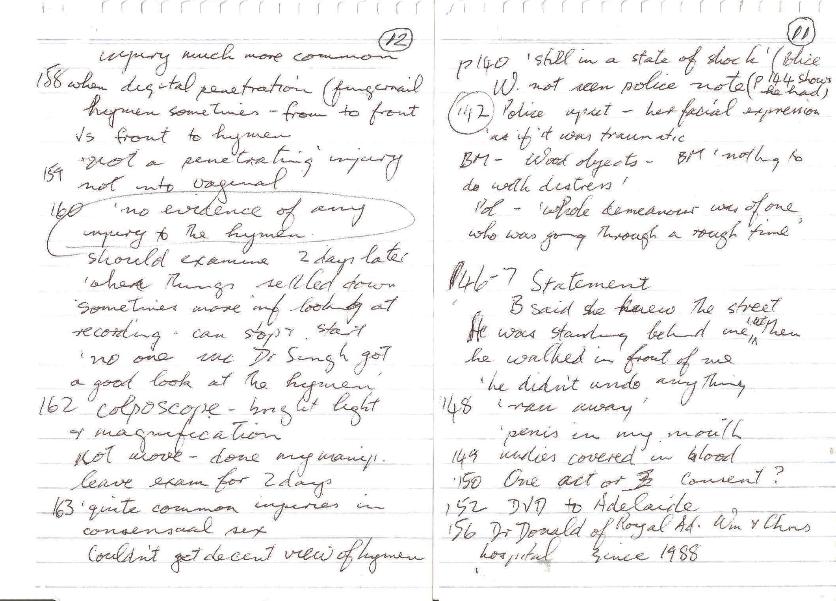 12
injury much more common
158 when digital penetration (fingernail
hymen sometimes - from to front
vs front to hymen
159 'not a penetrating' injury
not into vaginal
160 'no evidence of any
injury to the hymen.
should examine 2 days later
'where things settled down
'sometimes more inf looking at
recording - can stop & start
'no one inc Dr Singh got
a good look at the hymen'
162 colposcope - bright light
& magnification
Not move - done any manip.
leave exam for 2 days
163 'quite common injuries in
consensual sex
Couldn't get decent view of hymen
11
p140 'still in a state of shock' (Police
W. not seen police note (p144 shows he had)
142 Police upset - her facial expression
'as if it was traumatic
BM - Wood objects - BM 'nothing to
do with distress'
Pol - 'whole demeanour was of one
who was going through a rough time'
146-7 Statement
B said she knew the street
He was standing behind me, then
he walked in front of me
'he didn't undo anything
148 'ran away'
'penis in my mouth
149 undies covered in blood
150 One act or 2 consent?
152 DVD to Adelaide
156 Dr Donald of Royal Ad. Wm & Chns
hospital since 1988